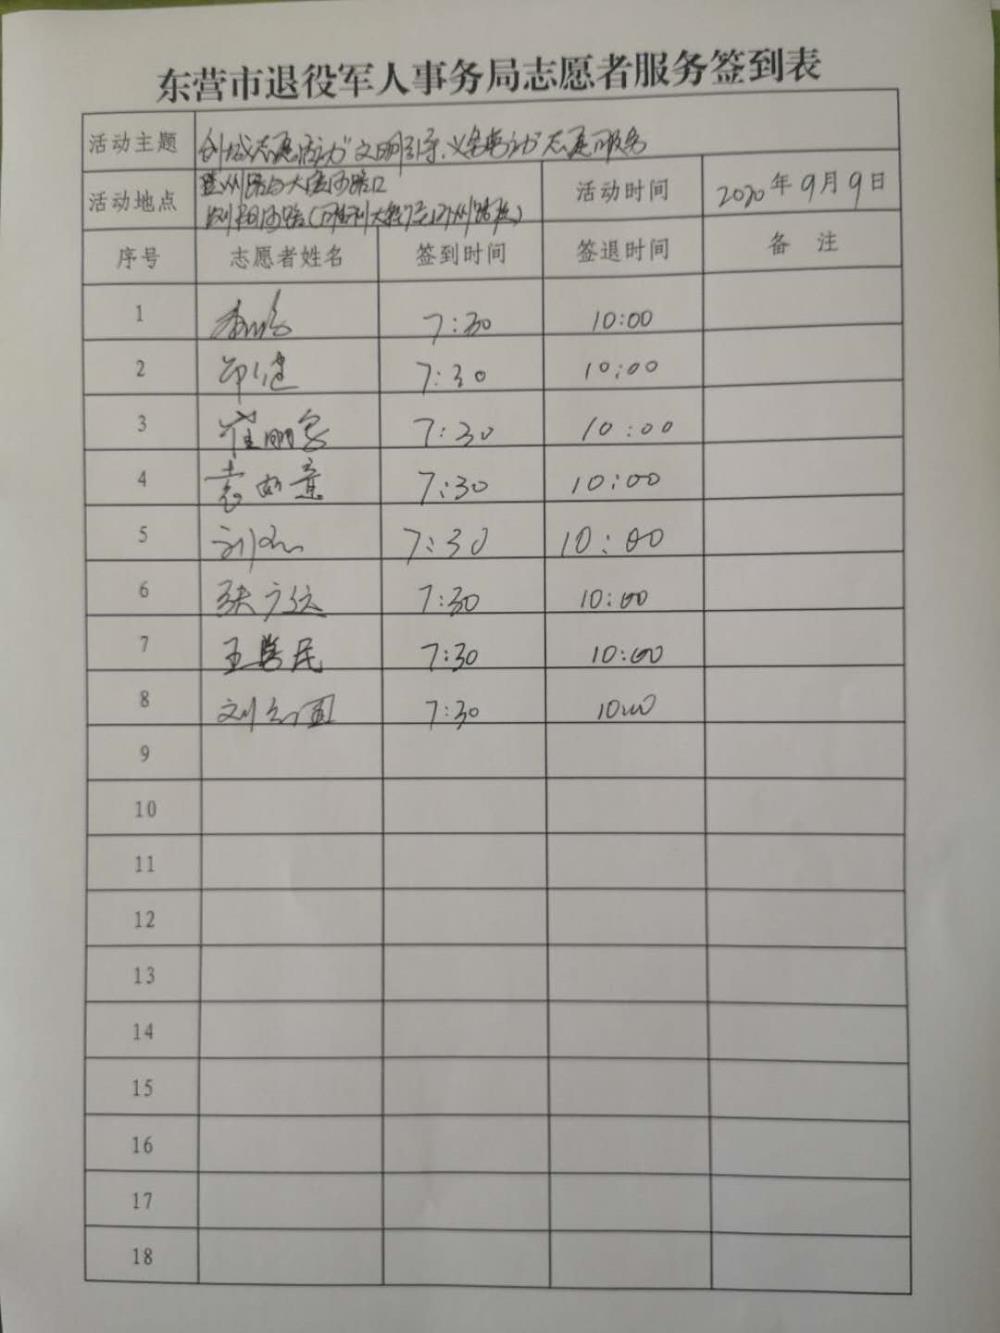 东营市退役军人事务局志愿者服务签到表
活动主题 创城志愿活动"文明引导、义务劳动"志愿服务
活动地点 路与大渡河路口 活动时间 2020年9月9日
浏阳河路
序号 志愿者姓名 签到时间 签退时间 备 注
1 7:30 10:00
2 7:30 10:00
3 崔丽 7:30 10:00
4 袁如意 7:30 10:00
5 刘 7:30 10:00
6 张 7:30 10:00
7 王 民 7:30 10:00
8 刘 国 7:30 10:00
9
10
11
12
13
14
15
16
17
18